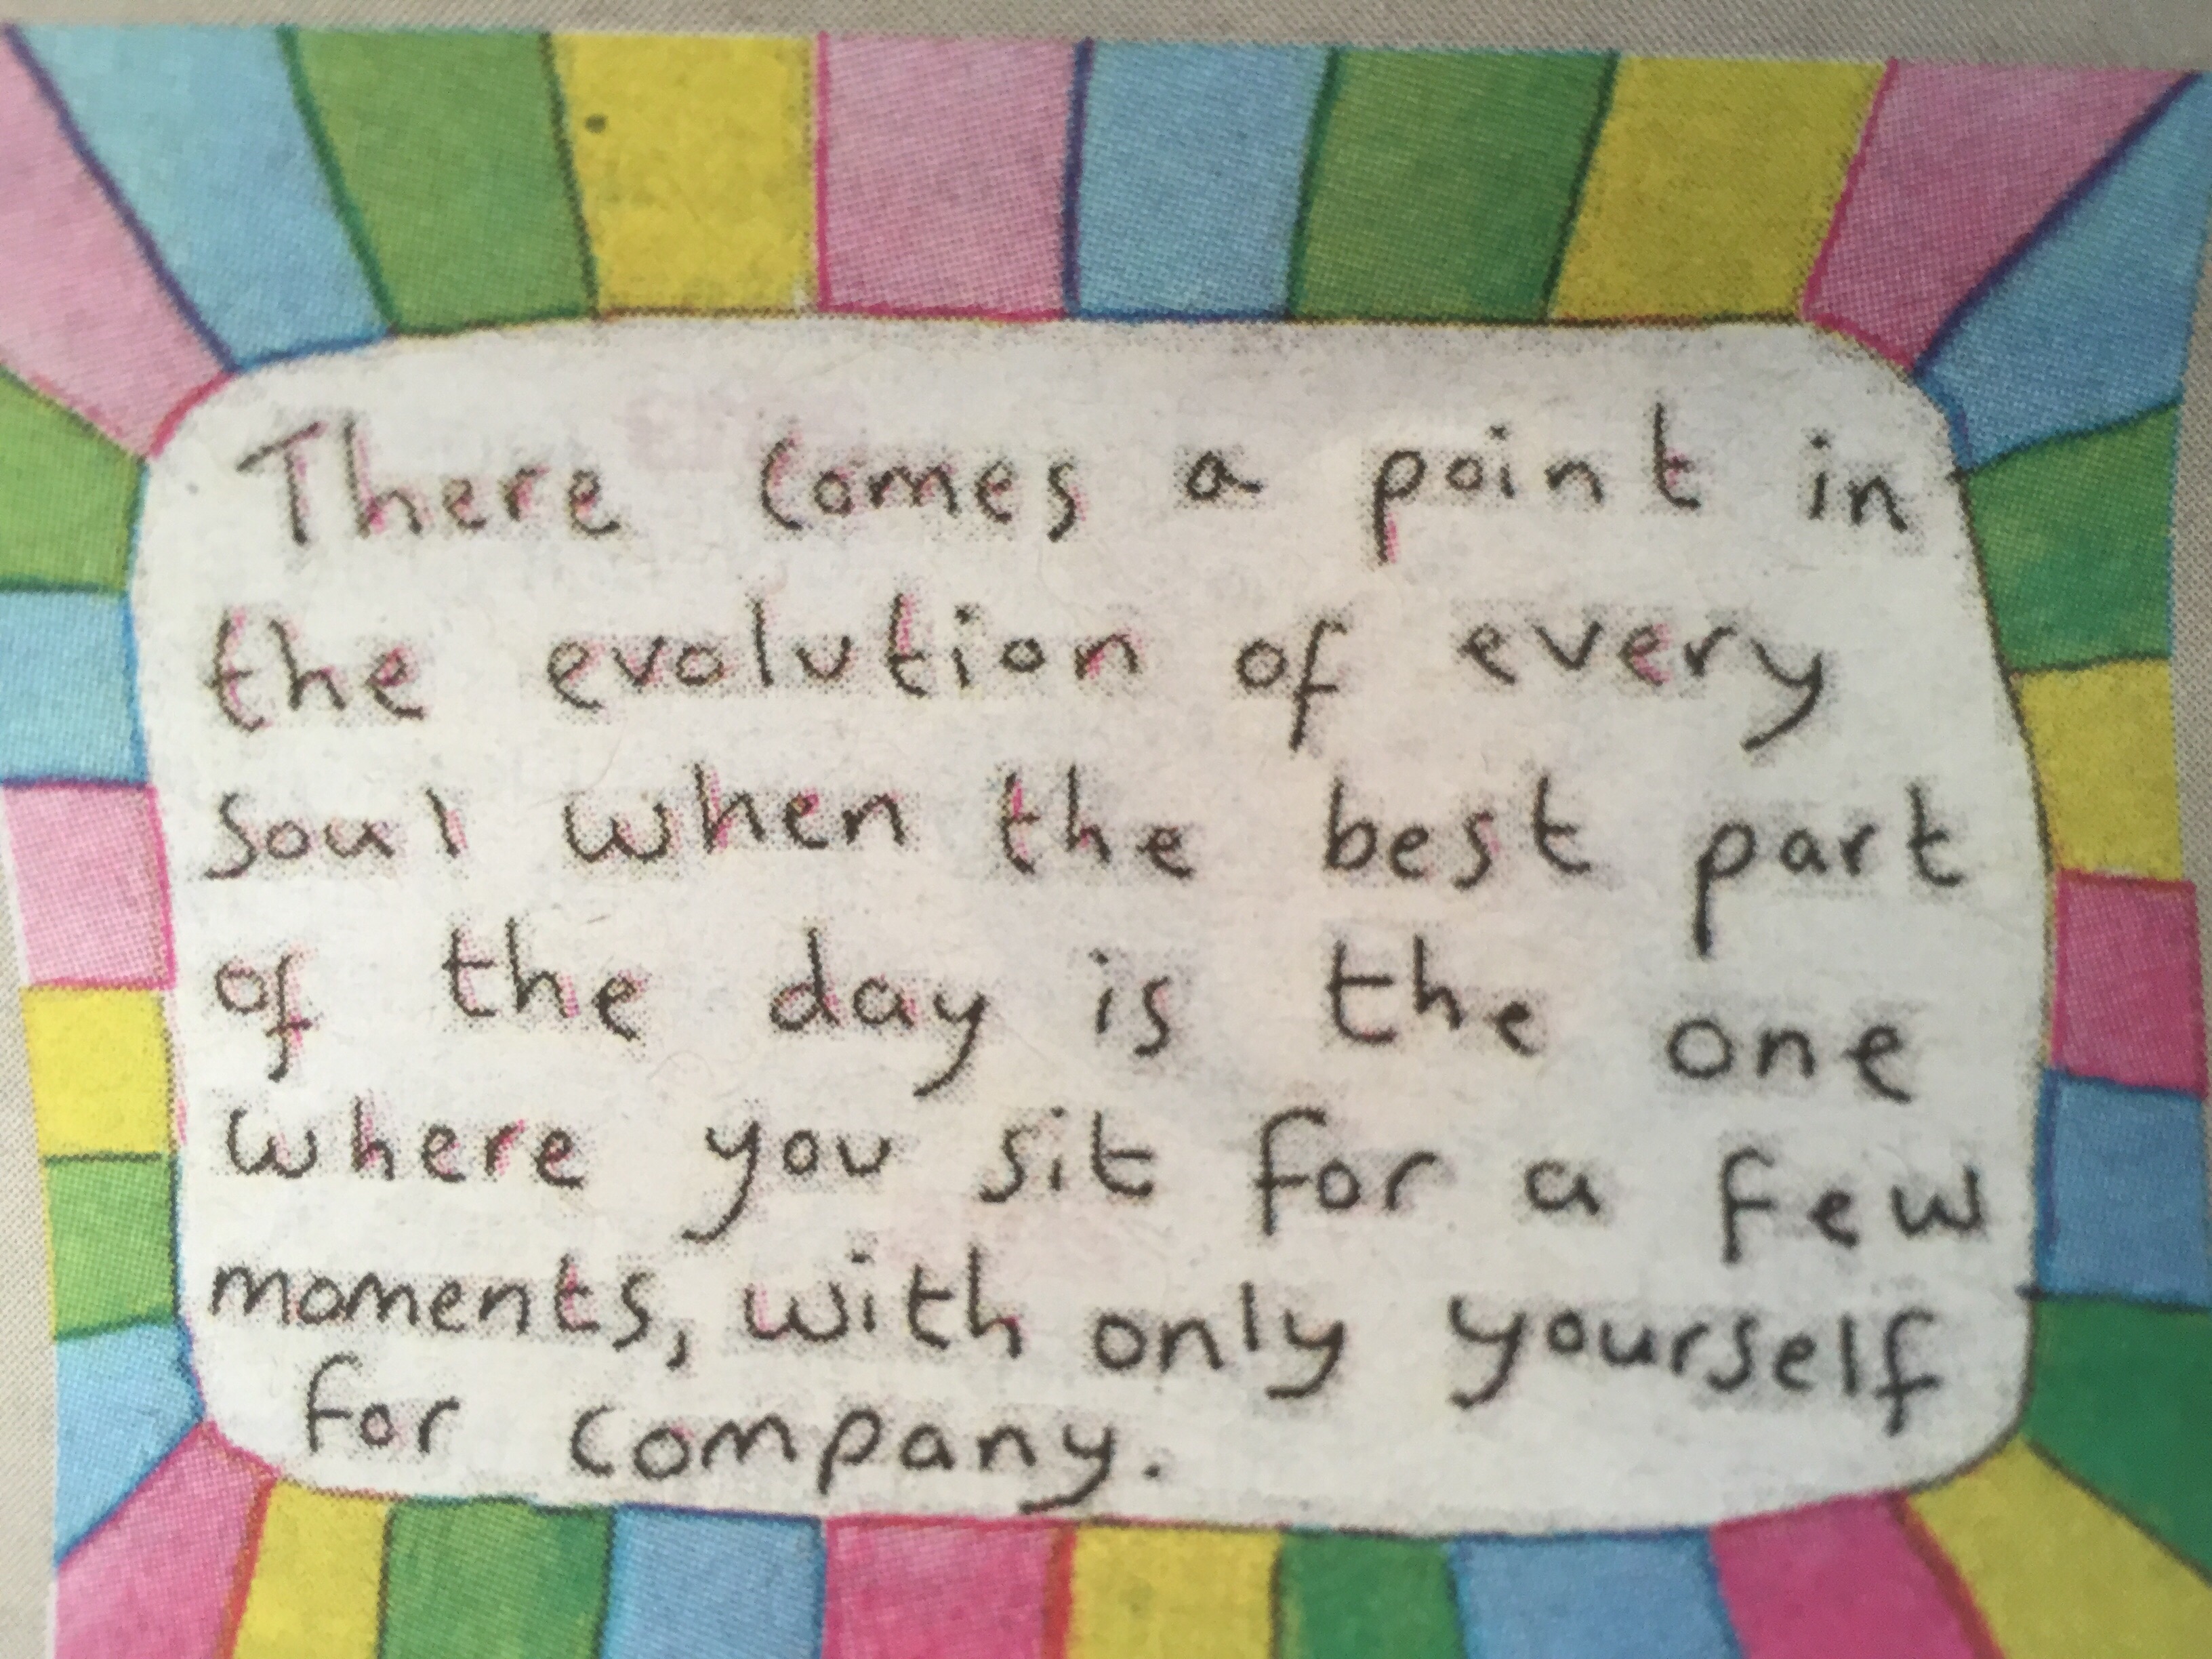 There comes a point in
the evolution of every
soul when the best part
of the day is the one
where you sit for a few
moments, with only yourself
for company.